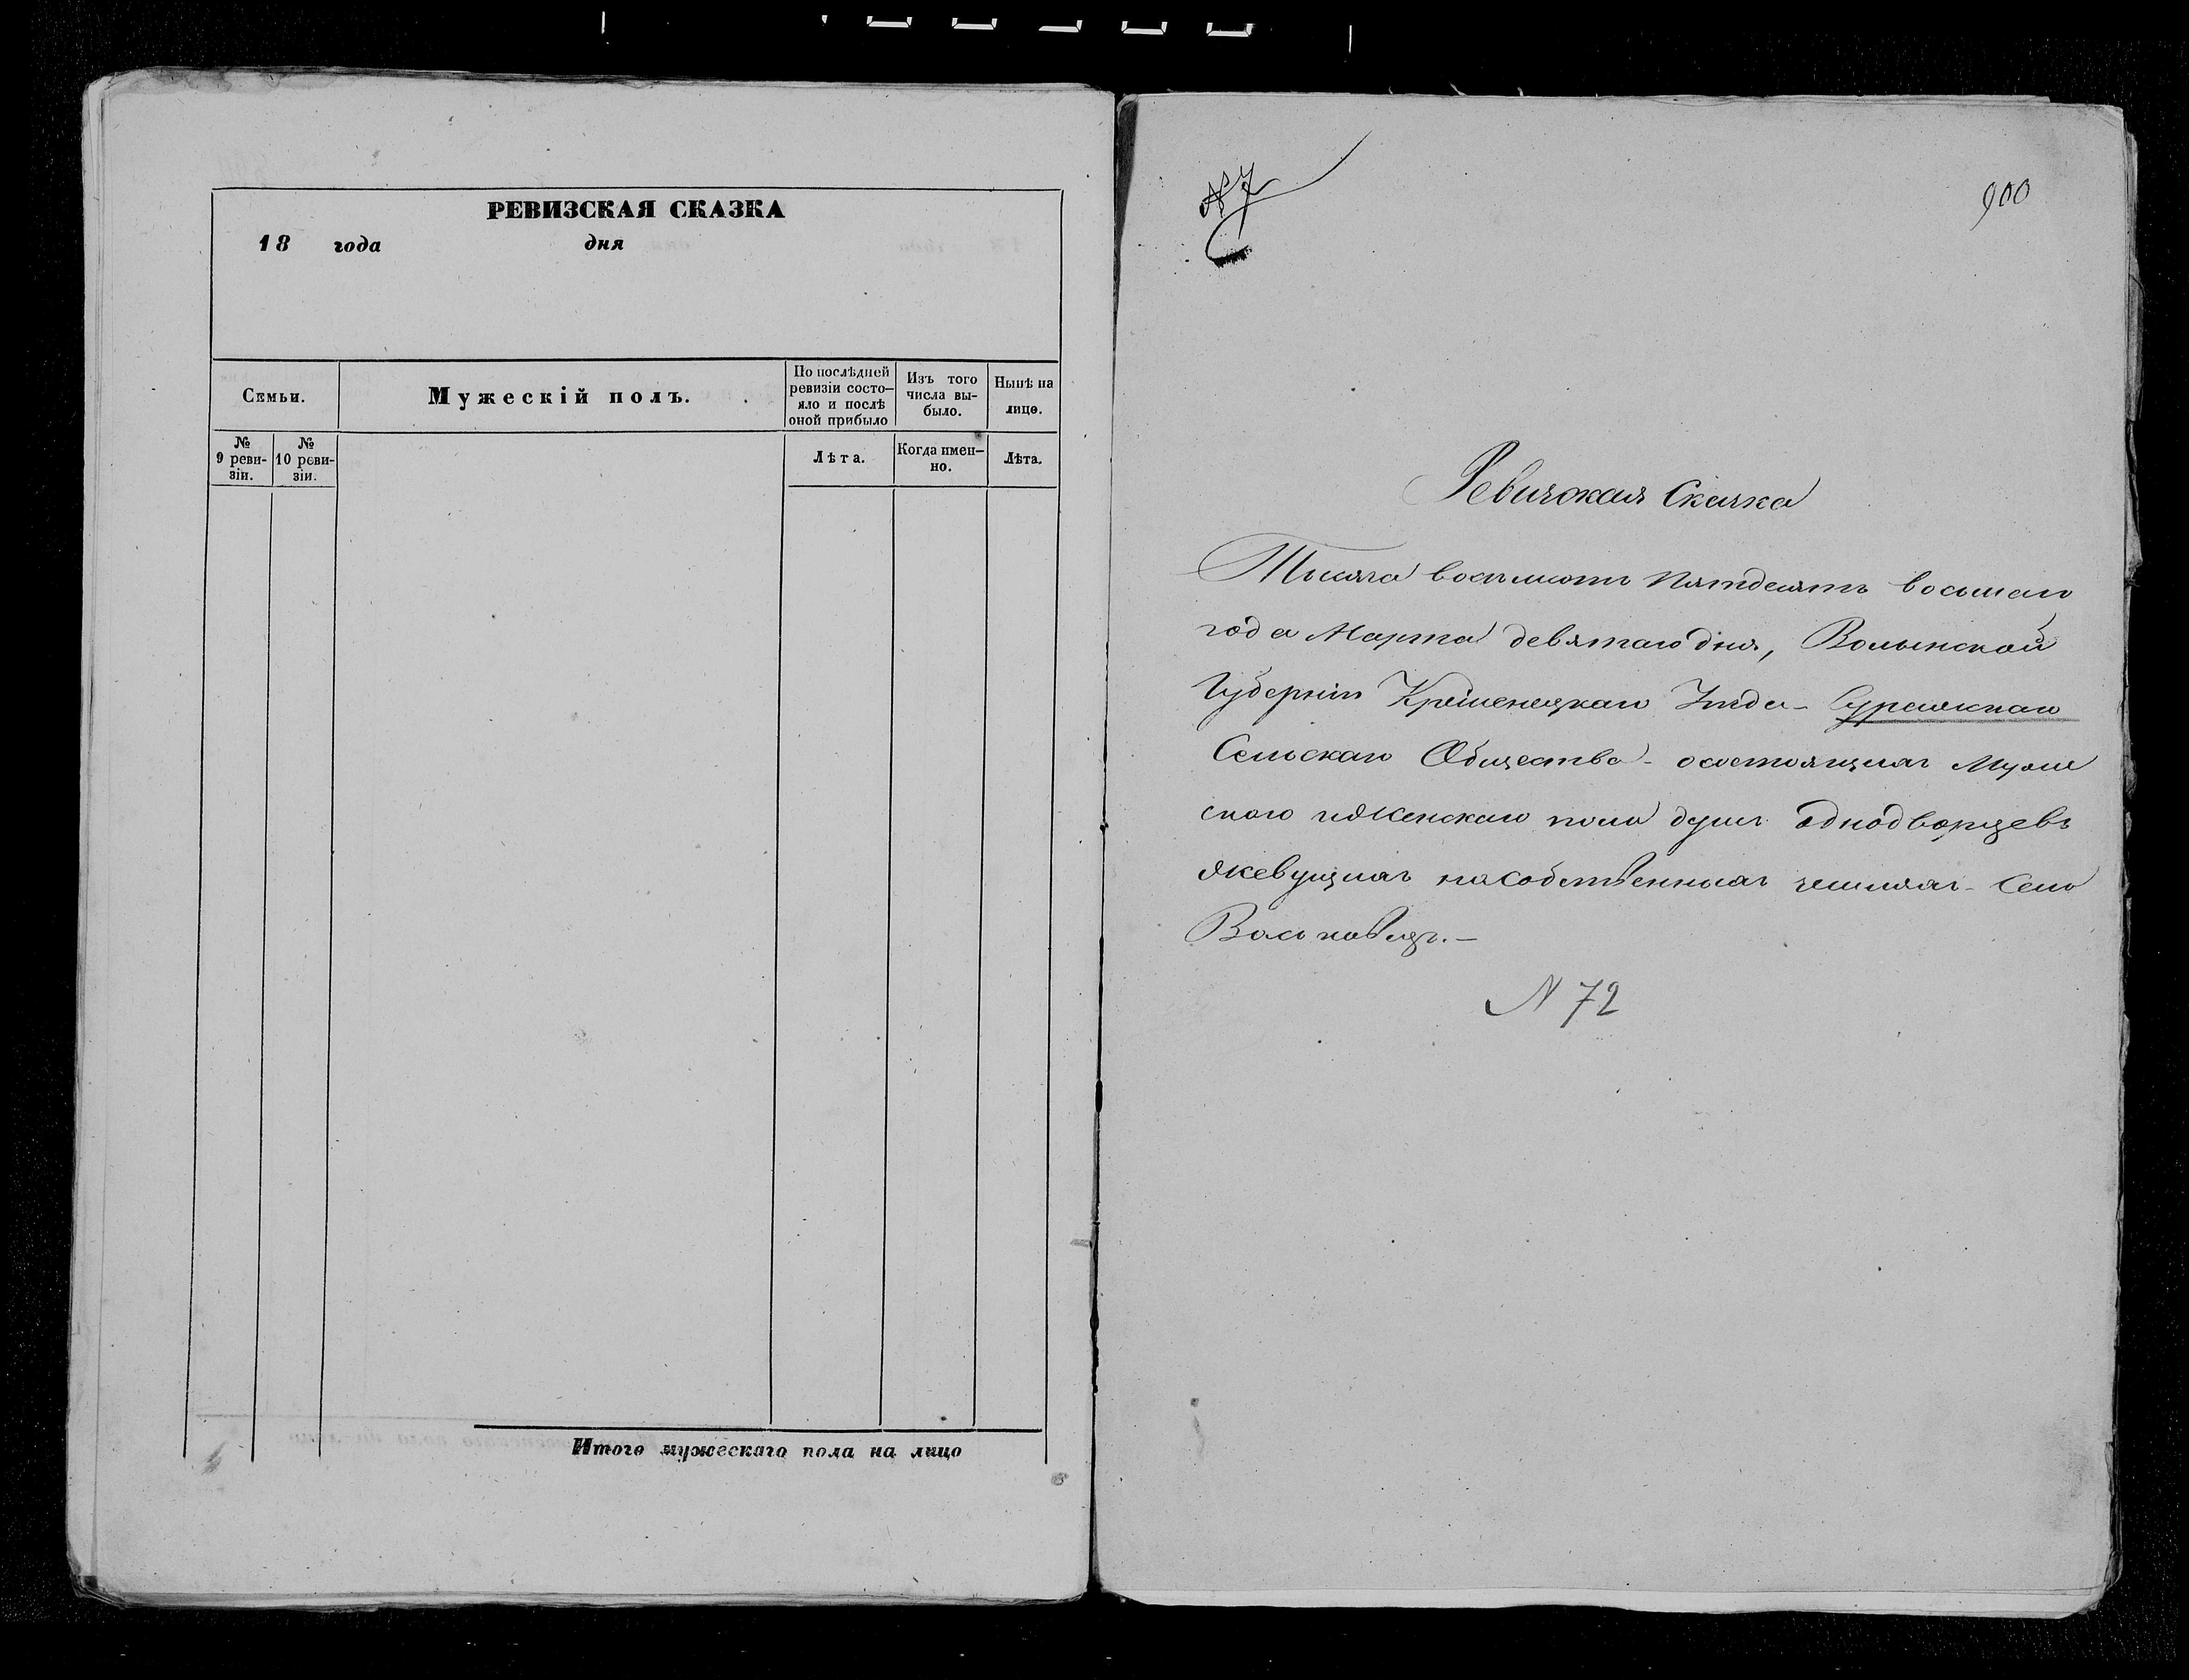 РЕВИЗСКАЯ СКАЗКА
18 года дня
Семьи.
Мужескій полъ.
По послѣдней
ревизіи состо-
яло и послѣ
оной прибыло
Изъ того
числа вы-
было.
Нынѣ на
лицо.
№
9 реви-
зіи.
№
10 реви-
зіи.
Лѣта.
Когда имен-
но.
Лѣта.
Итого мужескаго пола на лицо
№ 7
900
Ревизская Сказка
Тысяча восемьсотъ пятдесятъ восьмаго
года Марта девятаго дня, Волынской
Губерніи Кременецкаго Уѣзда
Сельскаго Общества о состоящихъ Муже
ского и женскаго пола душъ однодворцевъ
живущихъ на собственныхъ земляхъ Села
Васьковецъ.-
N 72